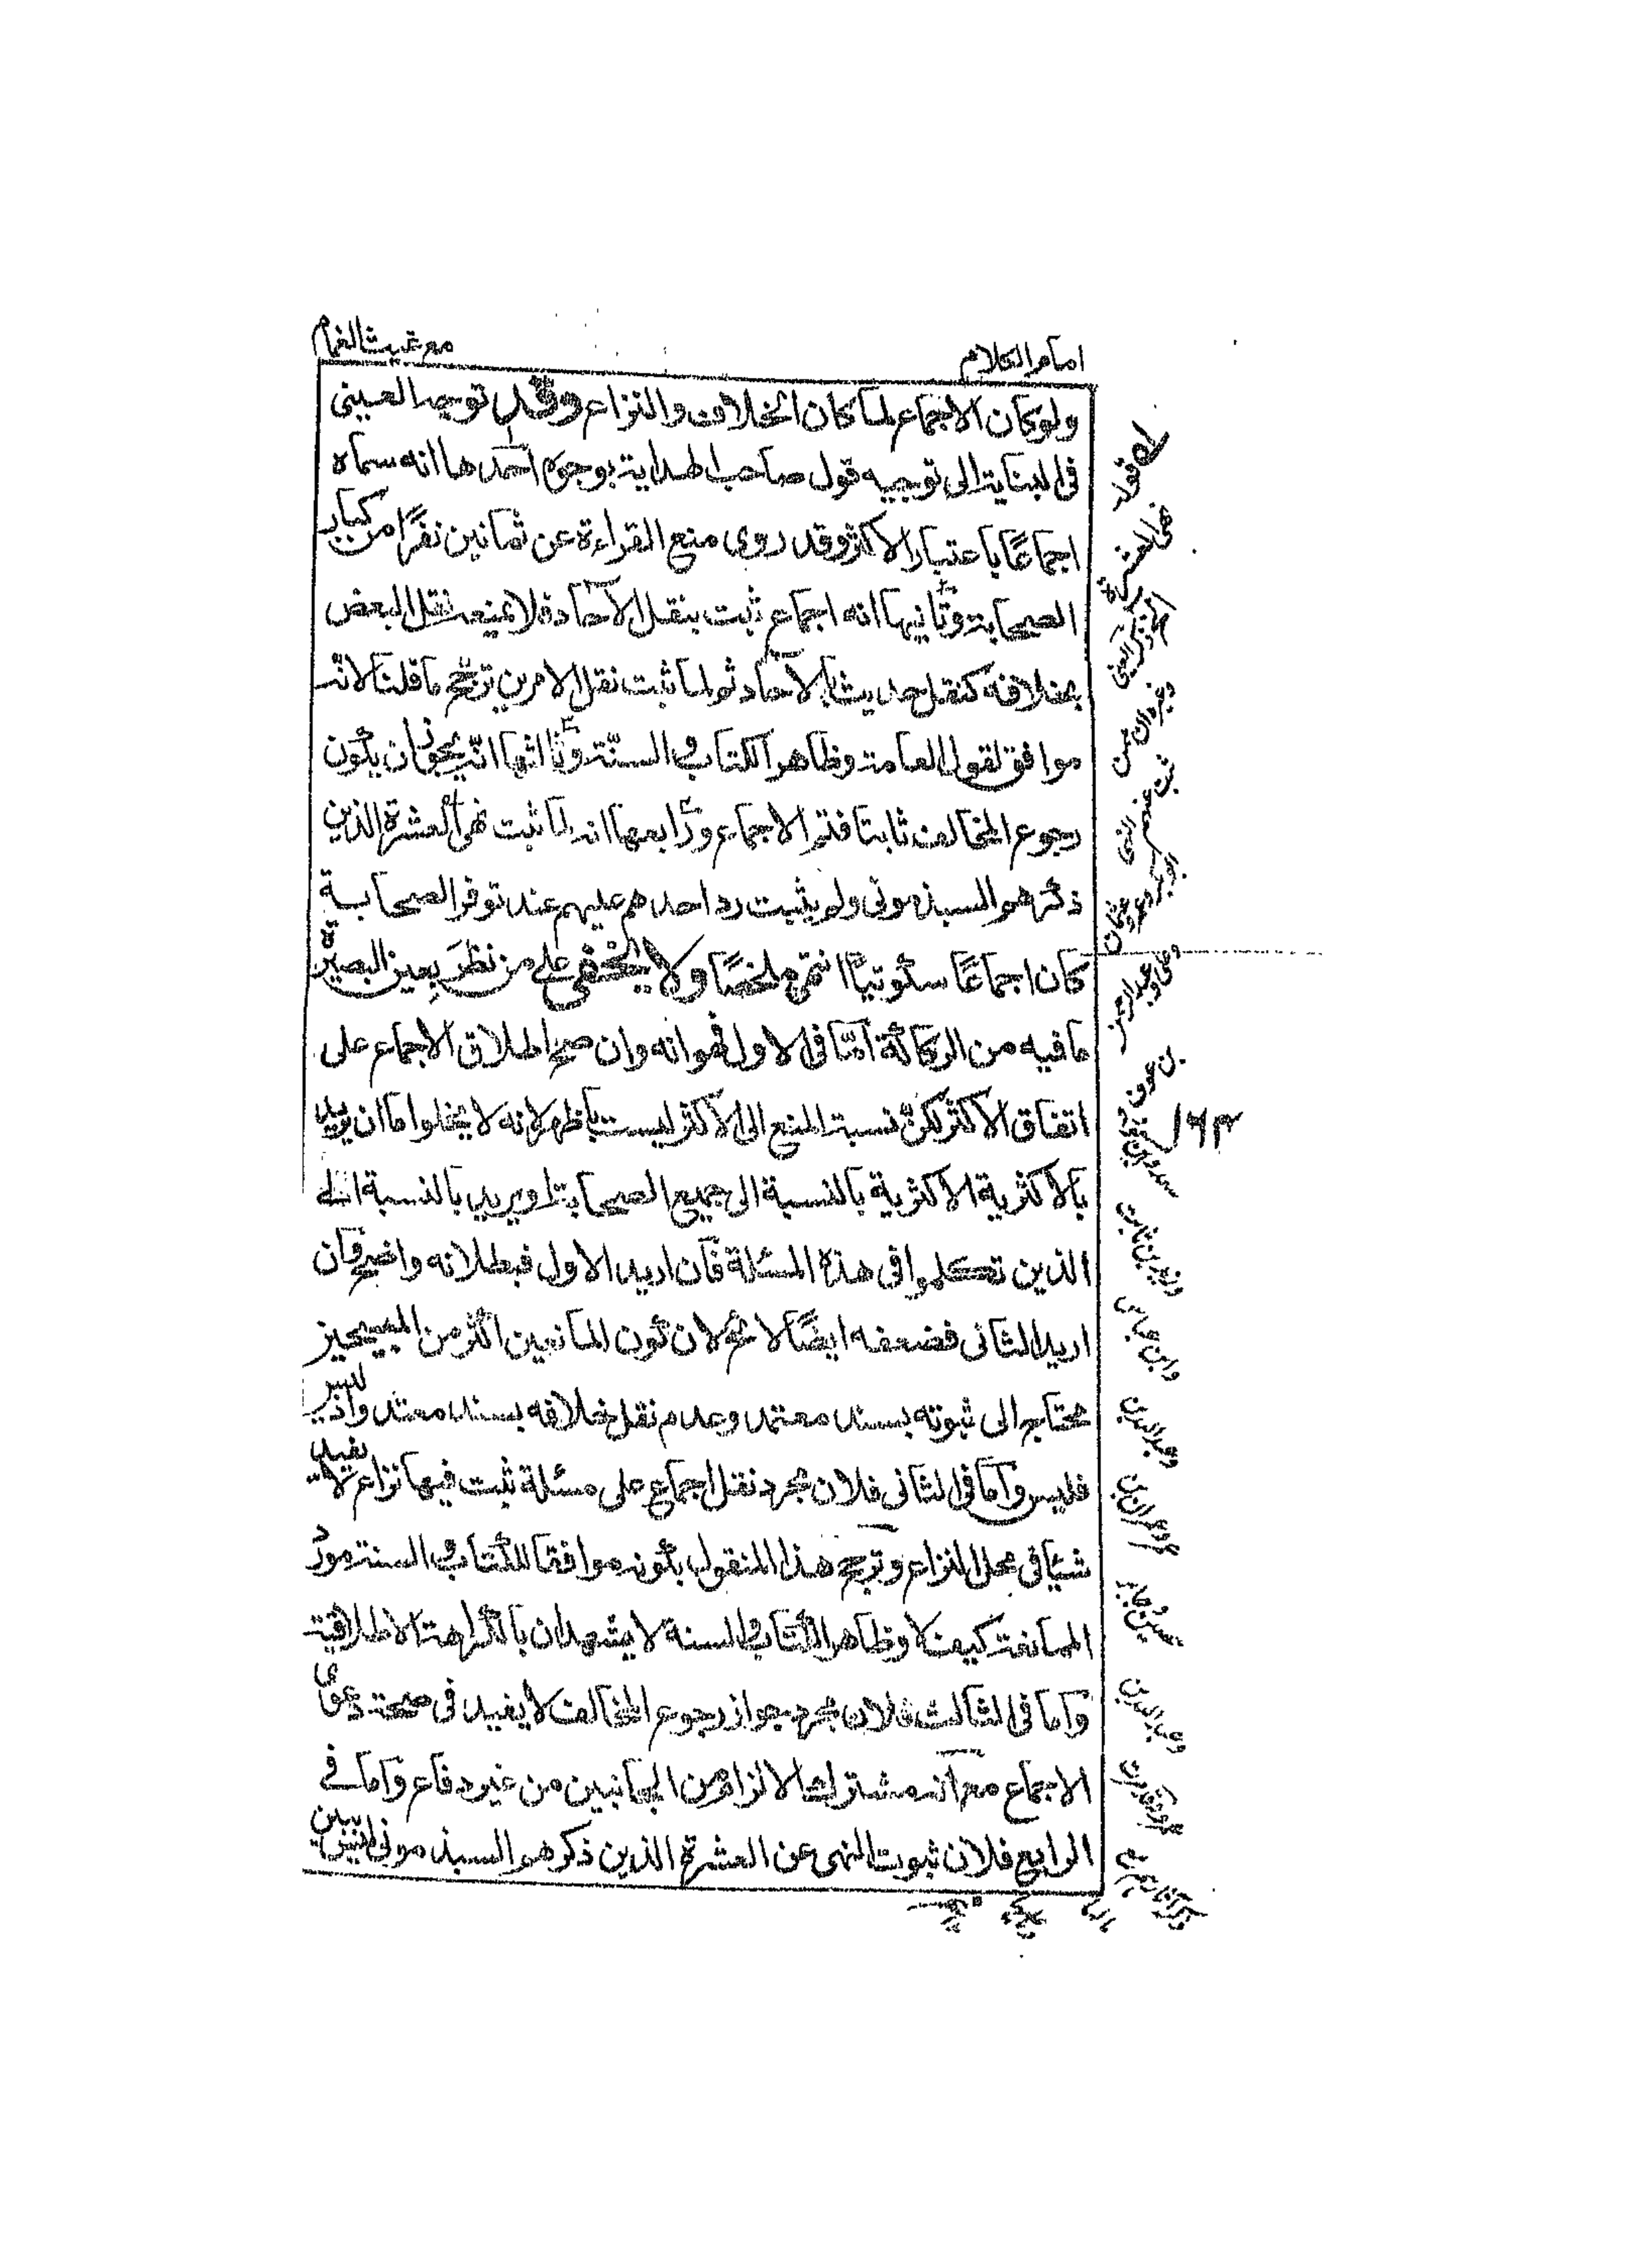 امام الكلام
مع غيث الغمام
ولو كان الاجماع لما كان الخلاف والنزاع وقد توجه العينى
فى البناية الى توجيه قول صاحب الهداية بوجوه احدها انه سماه
اجماعًا باعتبار الاكثر وقد روى منع القراءة عن ثمانين نفرًا من كبار
الصحابة وثانيها انه اجماع ثبت بنقل الآحاد فلا يمنعه نقل البعض
بخلافه كنقل حديث بالآحاد ثم لما ثبت نقل الامرين ترجح ما قلنا لانه
موافق لقول العامة وظاهر الكتاب والسنّة وثالثها انّه يجوز ان يكون
رجوع المخالف ثابتا فتم الاجماع ورابعها انه لما ثبت نهى العشرة الذين
ذكرهم السبذمونى ولم يثبت رد احد هم عليهم عند توفر الصحابة
كان اجماعًا سكوتيًا انتهى ملخصًا ولا يخفى على من نظر بعين البصيرة
ما فيه من الركاكة امّا فى الاول فهو انه وان صح اطلاق الاجماع على
اتفاق الاكثر لكن نسبة المنع الى الاكثر ليست باظهر لانه لا يخلوا ما ان يريد
بالاكثرية الاكثرية بالنسبة الى جميع الصحابة او يريد بالنسبة الى
الذين تكلموا فى هذه المسئلة فان اريد الاول فبطلانه واضح وان
اريد الثانى فضعفه ايضًا لائح لان كون المانعين اكثر من المبيحين
محتاج الى ثبوته بسند معتمد وعدم نقل خلافه بسند معتمد واذ ليس
فليس وأما فى الثانى فلان مجرد نقل اجماع على مسئلة ثبت فيها نزاع لا يفيد
شيئا فى محل النزاع وترجح هذا المنقول بكونه موافقا للكتاب والسنة مورد
الممانعة كيف لا وظاهر الكتاب والسنة لا يشهدان بالكراهة الاطلاقية
وأما فى الثالث فلان مجرد جواز رجوع المخالف لا يفيد فى صحة دعوى
الاجماع مع انه مشترك الالزام من الجانبين من غير دفاع وأما فى
الرابع فلان ثبوت النهى عن العشرة الذين ذكرهم السبذمونى
له قوله
نهى العشرة
الخ ذكر العينى
وغيره ان ممن
ثبت عنهم النهى
ابو بكر وعمر وعثمان
وعلى وعبد الرحمن
بن عوف
وزيد بن ثابت
وابن عباس
١٦٣